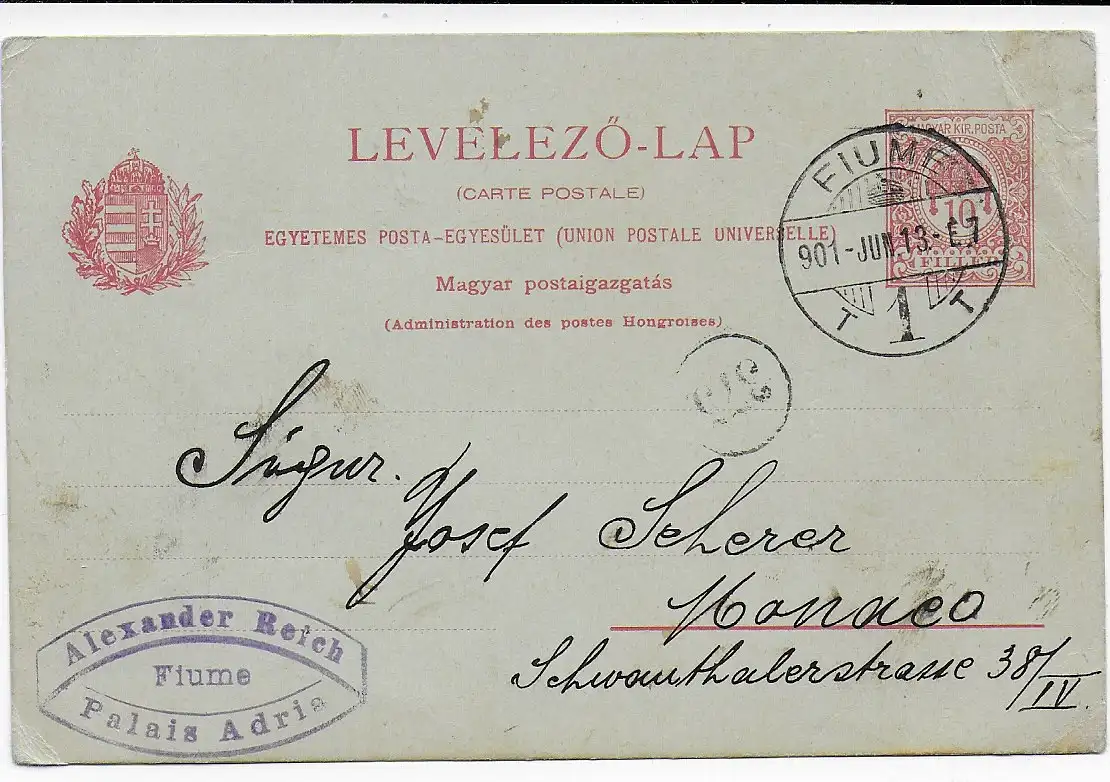 LEVELEZŐ-LAP
(CARTE POSTALE)
EGYETEMES POSTA-EGYESÜLET (UNION POSTALE UNIVERSELLE)
Magyar postaigazgatás
(Administration des postes Hongroises)
MAGYAR KIR. POSTA
10
FILLÉR
FIUME
901-JUN.13.-É.7
T 1 T
Josef Scherer
Monaco
Schwanthalerstrasse 38/IV.
Alexander Reich
Fiume
Palais Adria